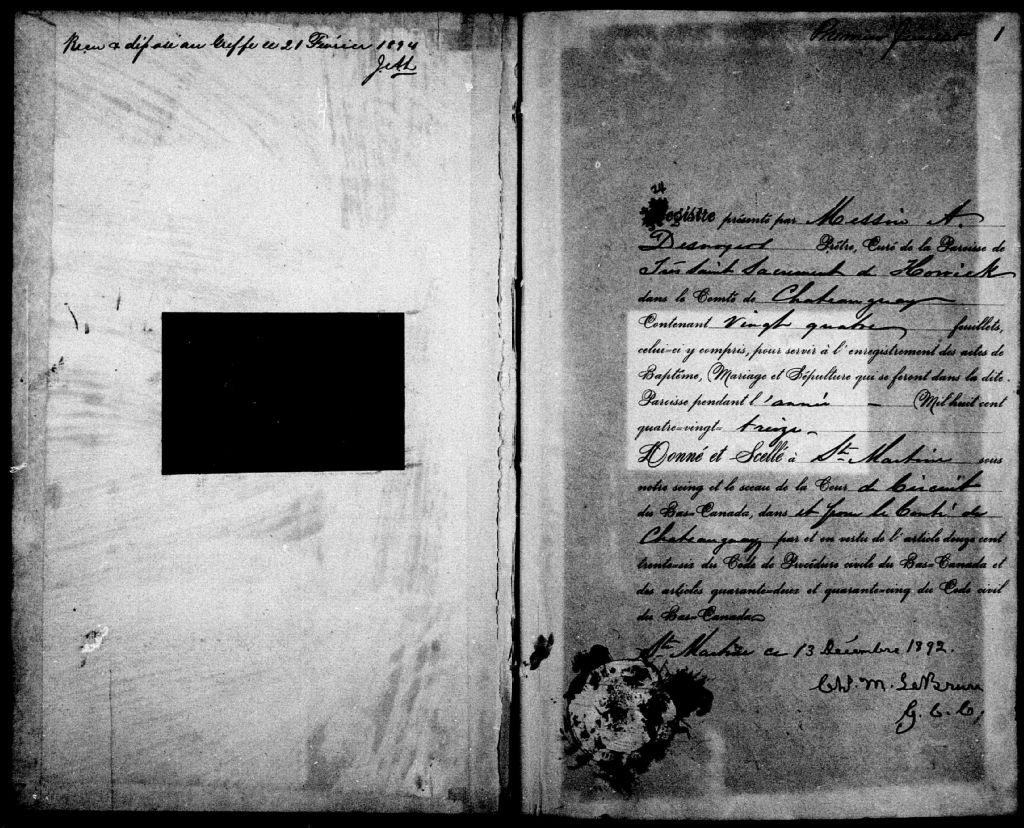 Reçu & déposé au Greffe ce 21 Février 1894
1
24
Registre présenté par Messire A.
Prêtre, Curé de la Paroisse de
Très Saint Sacrement d Howick
dans le Comté de Chateauguay
Contenant vingt quatre feuillets,
celui-ci y compris, pour servir à l'enregistrement des actes de
Baptême, Mariage et Sépulture qui se feront dans la dite
Paroisse pendant l'année — Mil huit cent
quatre-vingt- treize
Donné et Scellé à St. Martine sous
notre seing et le sceau de la Cour de Circuit
du Bas-Canada, dans et pour le Comté de
Chateauguay par et en vertu de l'article deux cent
trente-six du Code de Procédure civile du Bas-Canada et
des articles quarante-deux et quarante-cinq du Code civil
du Bas-Canada
St. Martine ce 13 Décembre 1892.
M. LeBrun
G. C. C,